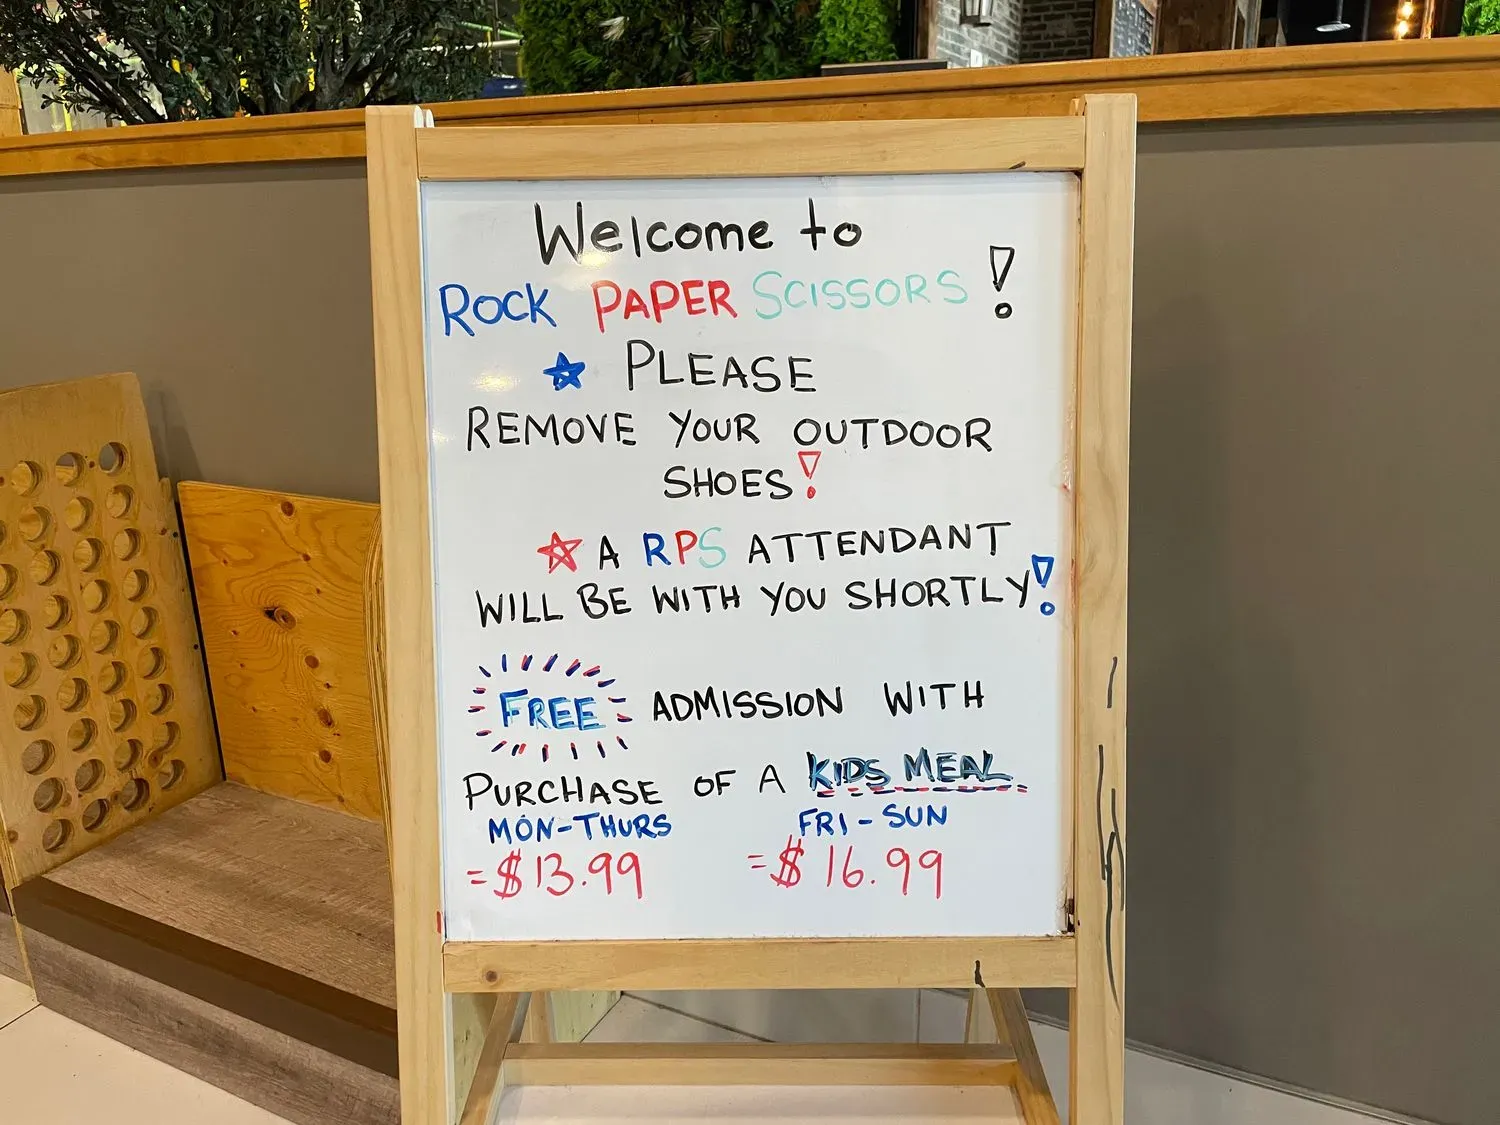 Welcome to
ROCK PAPER SCISSORS!
PLEASE
REMOVE YOUR OUTDOOR
SHOES!
A RPS ATTENDANT
WILL BE WITH YOU SHORTLY!
FREE ADMISSION WITH
PURCHASE OF A KIDS MEAL
MON-THURS FRI-SUN
=$13.99 =$16.99